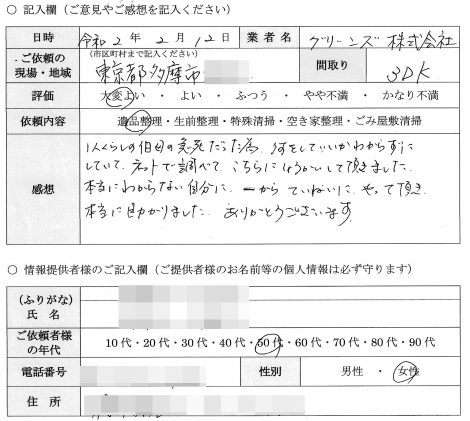 ○ 記入欄（ご意見やご感想を記入ください）
日時 令和 2年 2月 12日 業者名 グリーンズ 株式会社
ご依頼の現場・地域 （市区町村まで記入ください） 東京都多摩市 間取り 3DK
評価 大変よい ・ よい ・ ふつう ・ やや不満 ・ かなり不満
依頼内容 遺品整理・生前整理・特殊清掃・空き家整理・ごみ屋敷清掃
感想
1人ぐらしの伯母の急死だった為、何をしていいかわからずに
していて、ネットで調べて、こちらにしょうかいして頂きました。
本当にわからない自分に、一から ていねいに やって頂き
本当に助かりました。ありがとうございます
○ 情報提供者様のご記入欄（ご提供者様のお名前等の個人情報は必ず守ります）
（ふりがな）
氏 名
ご依頼者様の年代 10代・20代・30代・40代・50代・60代・70代・80代・90代
電話番号 性別 男性 ・ 女性
住 所